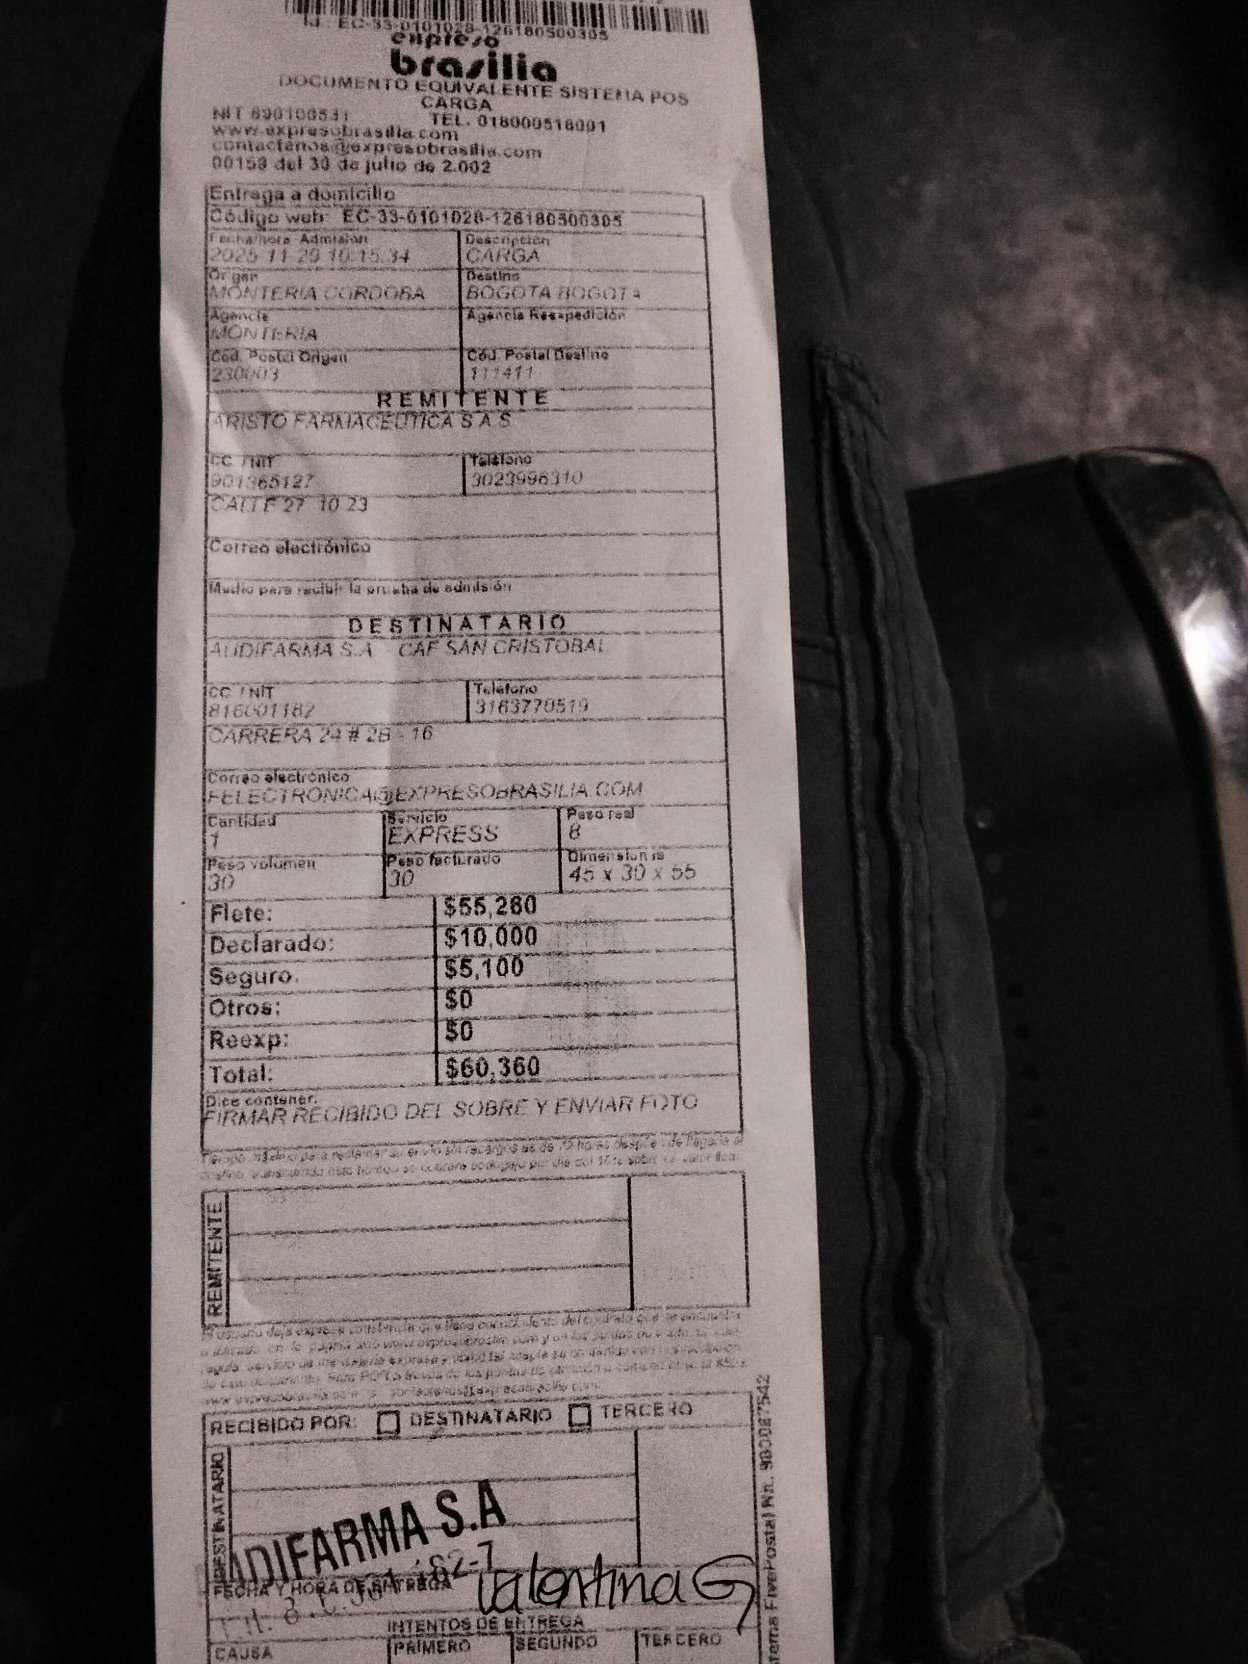 Id.: EC-33-0101028-126180500305
expreso
brasilia
DOCUMENTO EQUIVALENTE SISTEMA POS
CARGA
NIT 890100531 TEL. 018000518001
www.expresobrasilia.com
contactenos@expresobrasilia.com
00153 del 30 de julio de 2.002
Entrega a domicilio
Código web: EC-33-0101028-126180500305
Fecha/hora Admisión Descripción
10:15:34 CARGA
Origen Destino
MONTERIA CORDOBA BOGOTA BOGOTA
Agencia Agencia Reexpedición
MONTERIA
Cód. Postal Origen Cód. Postal Destino
230003 111411
REMITENTE
ARISTO FARMACEUTICA S A S
CC / NIT Teléfono
901365127 3023996310
CALLE 27 10 23
Correo electrónico
Medio para recibir la prueba de admisión
DESTINATARIO
AUDIFARMA S.A CAF SAN CRISTOBAL
CC / NIT Teléfono
816001182 3163770519
CARRERA 24 # 2B - 16
Correo electrónico
FELECTRONICA@EXPRESOBRASILIA.COM
Cantidad Servicio Peso real
1 EXPRESS 8
Peso volumen Peso facturado Dimensiones
30 30 45 x 30 x 55
Flete: $55,260
Declarado: $10,000
Seguro: $5,100
Otros: $0
Reexp: $0
Total: $60,360
Dice contener:
FIRMAR RECIBIDO DEL SOBRE Y ENVIAR FOTO
REMITENTE
RECIBIDO POR: DESTINATARIO TERCERO
DESTINATARIO
AUDIFARMA S.A
FECHA Y HORA DE ENTREGA
Valentina G
INTENTOS DE ENTREGA
CAUSA PRIMERO SEGUNDO TERCERO